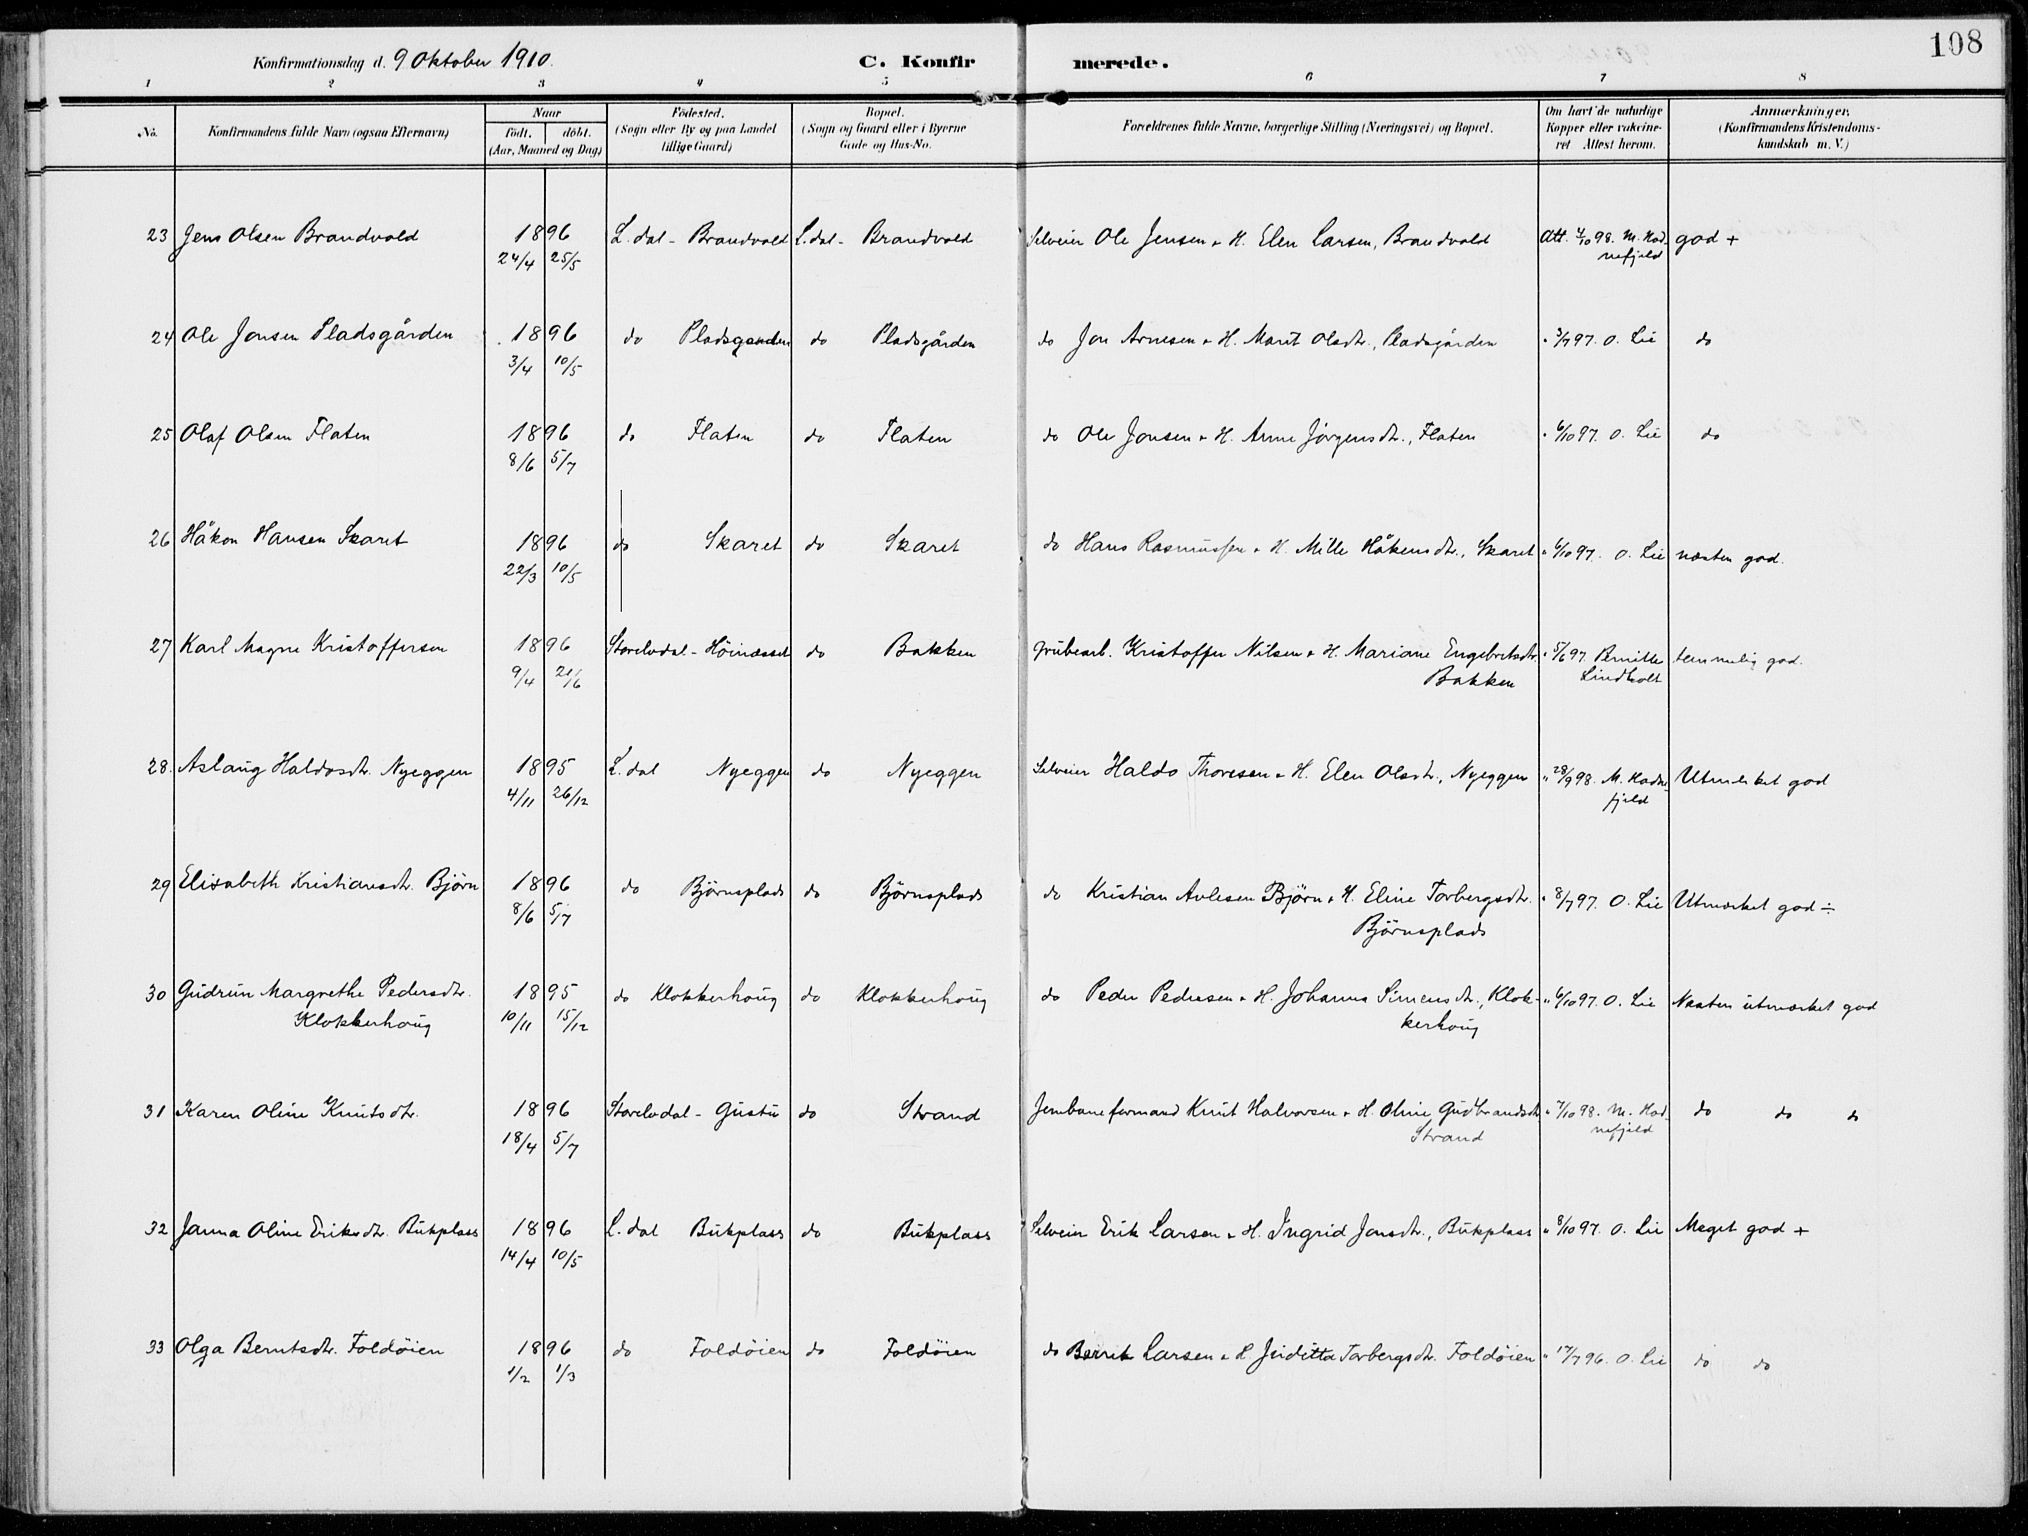 108
Konfirmationsdag d. 9 Oktober 1910. C. Konfirmerede.
1 2 3 4 5 6 7 8
No. Konfirmandens fulde Navn (ogsaa Efternavn) Naar født. døbt. (Aar, Maaned og Dag) Fødested. (Sogn eller By og paa Landet tillige Gaard) Bopæl. (Sogn og Gaard eller i Byerne Gade og Hus-No. Forældrenes fulde Navne, borgerlige Stilling (Næringsvei) og Bopæl. Om havt de naturlige Kopper eller vakcineret Attest herom. Anmærkninger. (Konfirmandens Kristendomskundskab m. V.)
23 Jens Olsen Brandvold 1896 L. dal - Brandvold L. dal - Brandvold Selveier Ole Jensen & H. Elen Larsen, Brandvold Att. 4/10 98. M. Had- god +
24/4 25/5 nefjeld
24 Ole Jonsen Pladsgården 1896 do Pladsgården do Pladsgården do Jon Arnesen & H. Marit Olsdtr., Pladsgården " 3/7 97. O. Lie do
3/4 10/5
25 Olaf Olsen Flaten 1896 do Flaten do Flaten do Ole Jonsen & H. Anne Jørgensdtr., Flaten " 6/10 97. O. Lie do
8/6 5/7
26 Håkon Hansen Skaret 1896 do Skaret do Skaret do Hans Rasmussen & H. Mille Håkensdtr., Skaret " 6/10 97. O. Lie næsten god.
22/3 10/5
27 Karl Magne Kristoffersen 1896 Storelvdal - Höinæsset do Bakken Grubearb. Kristoffer Nilsen & H. Mariane Engebretsdtr. " 5/6 97. Pernille temmelig god.
9/4 21/6 Bakken Lindholt
28. Aslaug Haldosdtr. Nyeggen 1895 L. dal Nyeggen do Nyeggen Selveier Haldo Thoresen & H. Elen Olsdtr., Nyeggen " 28/9 98. M. Hadne- Utmerket god
4/11 26/12 fjeld
29 Elisabeth Kristiansdtr. Björn 1896 do Björnsplads do Björnsplads do Kristian Avlesen Björn & H. Eline Torbergsdtr. " 8/7 97. O. Lie Utmærket god ÷
8/6 5/7 Björnsplads
30 Gudrun Margrethe Pedersdtr. 1895 do Klokkerhoug do Klokkerhoug do Peder Pedersen & H. Johanna Simensdtr., Klok- " 6/10 97. O. Lie Næsten utmærket god
Klokkerhoug 10/11 15/12 kerhoug
31 Karen Oline Knutsdtr. 1896 Storelvdal - Gustu do Strand Jernbaneformand Knut Halvorsen & H. Oline Gudbrandsdtr. " 7/10 98. M. Had- do do do
18/4 5/7 Strand nefjeld
32 Janna Oline Eriksdtr. Bukplass 1896 L. dal Bukplass do Bukplass Selveier Erik Larsen & H. Ingrid Jonsdtr., Bukplass " 8/10 97. O. Lie Meget god +
14/4 10/5
33 Olga Berntsdtr. Foldöien 1896 do Foldöien do Foldöien do Bernt Larsen & H. Juditta Torbergsdtr. Foldöien " 17/7 96. O. Lie do do
1/2 1/3